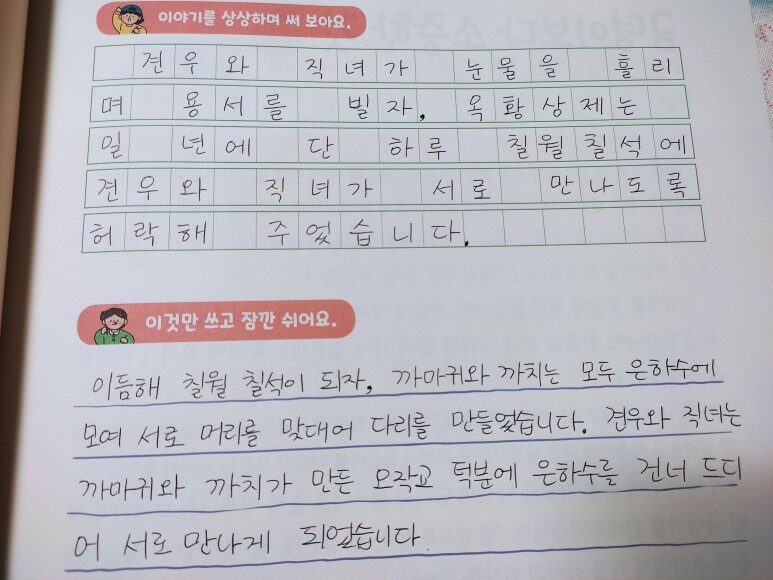 이야기를 상상하며 써 보아요.
견우와 직녀가 눈물을 흘리
며 용서를 빌자, 옥황상제는
일 년에 단 하루 칠월 칠석에
견우와 직녀가 서로 만나도록
허락해 주었습니다.
이것만 쓰고 잠깐 쉬어요.
이듬해 칠월 칠석이 되자, 까마귀와 까치는 모두 은하수에
모여 서로 머리를 맞대어 다리를 만들었습니다. 견우와 직녀는
까마귀와 까치가 만든 오작교 덕분에 은하수를 건너 드디
어 서로 만나게 되었습니다.